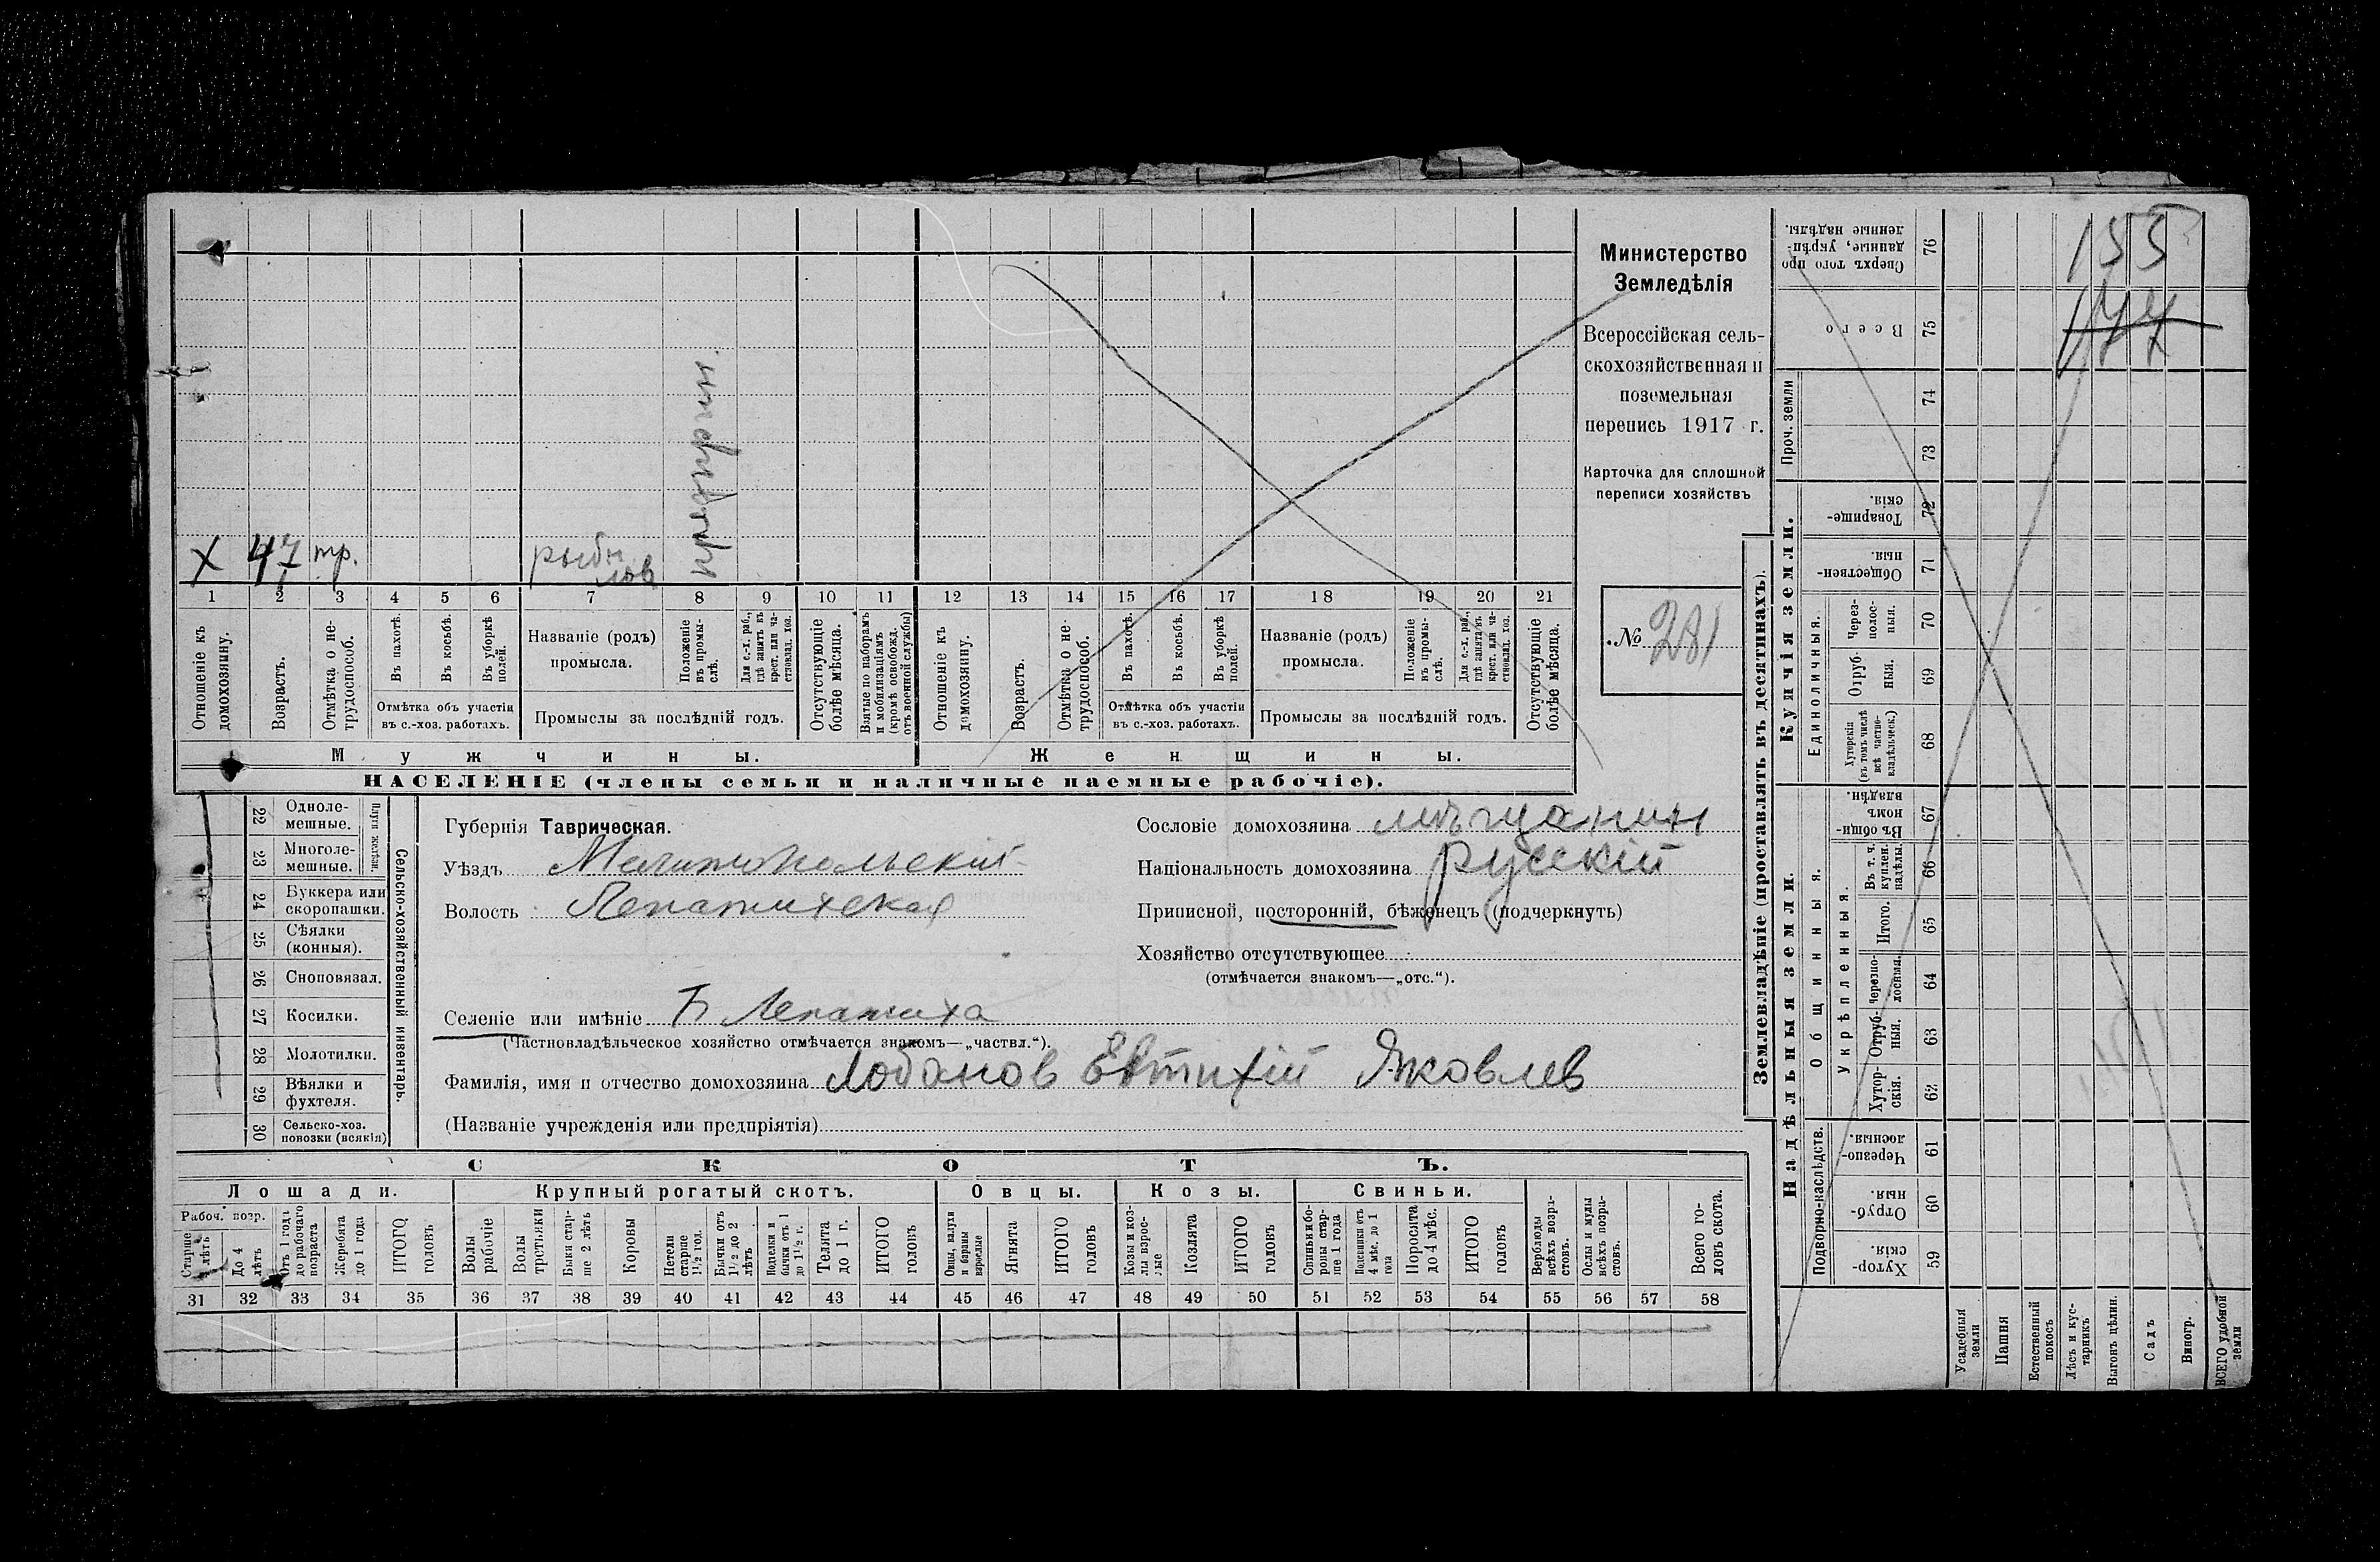 Х 47 тр. рыбн
лов
1 2 3 4 5 6 7 8 9 10 11 12 13 14 15 16 17 18 19 20 21
Отношеніе къ домохозяину.
Возрастъ.
Отмѣтка о не-трудоспособ.
Въ пахотѣ.
Въ косьбѣ.
Въ уборкѣ полей.
Отмѣтка объ участіи
въ с.-хоз. работахъ.
Названіе (родъ)
промысла.
Положеніе въ промы-слѣ.
Для с.-х. раб., гдѣ занятъ въ крест. или ча-стновлад. хоз.
Промыслы за послѣдній годъ.
Отсутствующіе болѣе мѣсяца.
Взятые по наборамъ и мобилизаціямъ (кромѣ освобожд. отъ военной службы)
Отношеніе къ домохозяину.
Возрастъ.
Отмѣтка о не-трудоспособ.
Въ пахотѣ.
Въ косьбѣ.
Въ уборкѣ полей.
Отмѣтка объ участіи
въ с.-хоз. работахъ.
Названіе (родъ)
промысла.
Положеніе въ промы-слѣ.
Для с.-х. раб., гдѣ занята въ крест. или ча-стновлад. хоз.
Промыслы за послѣдній годъ.
Отсутствующіе болѣе мѣсяца.
Мужчины.
Женщины.
НАСЕЛЕНІЕ (члены семьи и наличные наемные рабочіе).
Министерство
Земледѣлія
Всероссійская сель-
скохозяйственная и
поземельная
перепись 1917 г.
Карточка для сплошной
переписи хозяйствъ
№ 281
22 Одноле-мешные.
23 Многоле-мешные.
Плуги желѣзн.
24 Буккера или скоропашки.
25 Сѣялки (конныя).
26 Сноповязал.
27 Косилки.
28 Молотилки.
29 Вѣялки и фухтеля.
30 Сельско-хоз. повозки (всякія)
Сельско-хозяйственный инвентарь.
Губернія Таврическая.
Уѣздъ Мелитопольский
Волость Лепатихская
Селеніе или имѣніе Б Лепатиха
(Частновладѣльческое хозяйство отмѣчается знакомъ—„частвл.“).
Фамилія, имя и отчество домохозяина Лобанов Евтихій Яковлев
(Названіе учрежденія или предпріятія)
Сословіе домохозяина мѣщанин
Національность домохозяина русскій
Приписной, посторонній, бѣженецъ (подчеркнуть)
Хозяйство отсутствующее
(отмѣчается знакомъ—„отс.“).
СКОТЪ.
Лошади.
Крупный рогатый скотъ.
Овцы.
Козы.
Свиньи.
Рабоч. возр.
До 4 лѣтъ
Отъ 1 года до рабочаго возраста
Жеребята до 1 года
ИТОГО головъ
Волы рабочіе
Волы третьяки
Быки стар-ше 2 лѣтъ
Коровы
Нетели старше 1½ год.
Бычки отъ 1½ до 2 лѣтъ
Нетелки и бычки отъ 1 до 1½ г.
Телята до 1 г.
ИТОГО головъ
Овцы, валухи и бараны взрослые
Ягнята
ИТОГО головъ
Козы и коз-лы взрос-лые
Козлята
ИТОГО головъ
Свиньи и бо-ровы стар-ше 1 года
Подсвинки отъ 4 мѣс. до 1 года
Поросята до 4 мѣс.
ИТОГО головъ
Верблюды всѣхъ возра-стовъ.
Ослы и мулы всѣхъ возра-стовъ.
Всего го-ловъ скота.
31 32 33 34 35 36 37 38 39 40 41 42 43 44 45 46 47 48 49 50 51 52 53 54 55 56 57 58
Землевладѣніе (проставлять въ десятинахъ).
Надѣльныя земли.
Купчія земли.
Проч. земли
Подворно-наслѣдств.
Общинныя.
Укрѣпленныя.
Единоличныя.
Сверхъ того про данные, укрѣп-ленные надѣлы. 76
Всего 75
74
73
Товарище-скія. 72
Обществен-ныя. 71
Через-полос-ныя. 70
Отруб-ныя. 69
Хуторскія (въ томъ числѣ всѣ частно-владѣльческ.) 68
Въ общи-номъ владѣн. 67
Въ т. ч. куплен. надѣлы. 66
Итого. 65
Черезпо-лосныя. 64
Отруб-ныя. 63
Хутор-скія. 62
Черезпо-лосныя. 61
Отруб-ныя. 60
Хутор-скія. 59
Усадебныя земли
Пашня
Естественный покосъ
Лѣсъ и кус-тарникъ
Выгонъ цѣлин.
Садъ
Виногр.
ВСЕГО удобной земли
155